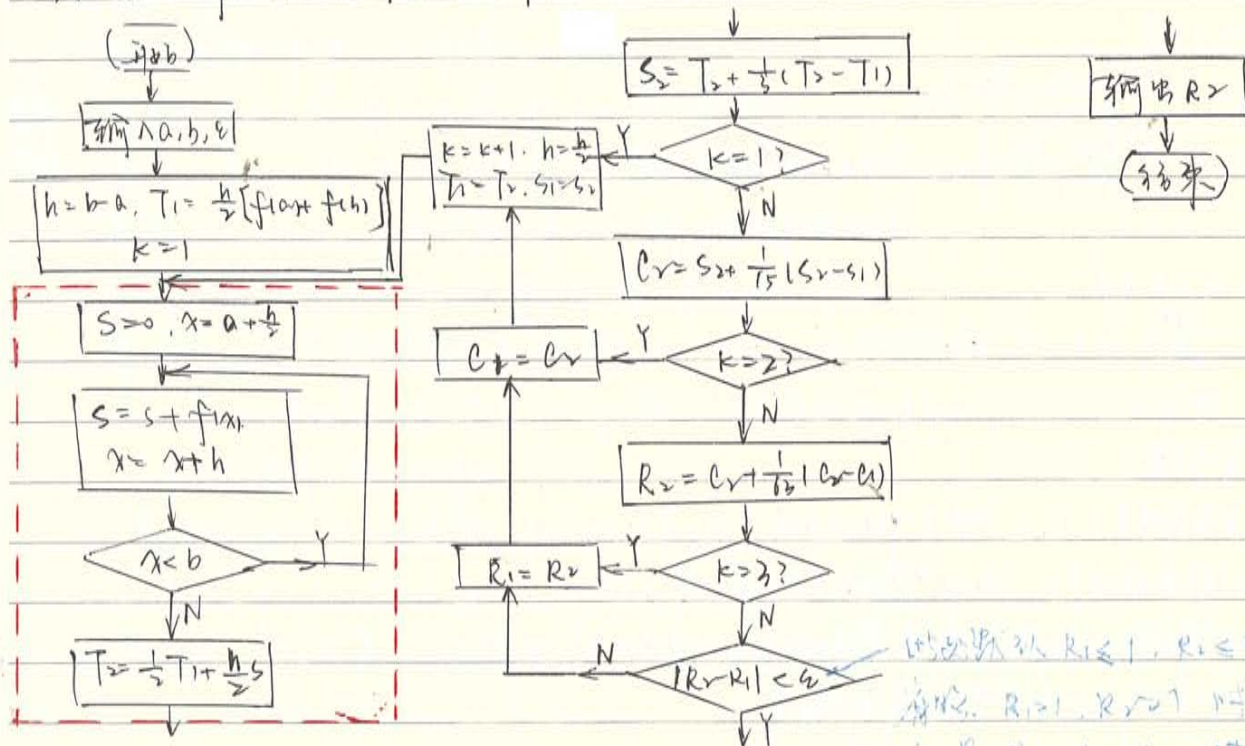 开始
输入a,b,ε
h=b-a, T₁=h/2[f(a)+f(b)]
k=1
S=0, x=a+h/2
S=S+f(x)
x=x+h
x<b
Y
N
T₂=1/2T₁+h/2S
S₂=T₂+1/3(T₂-T₁)
k=1?
Y
k=k+1, h=h/2
T₁=T₂, S₁=S₂
N
C₂=S₂+1/15(S₂-S₁)
k=2?
Y
C₁=C₂
N
R₂=C₂+1/63(C₂-C₁)
k=3?
Y
R₁=R₂
N
|R₂-R₁|<ε
N
Y
输出R₂
结束